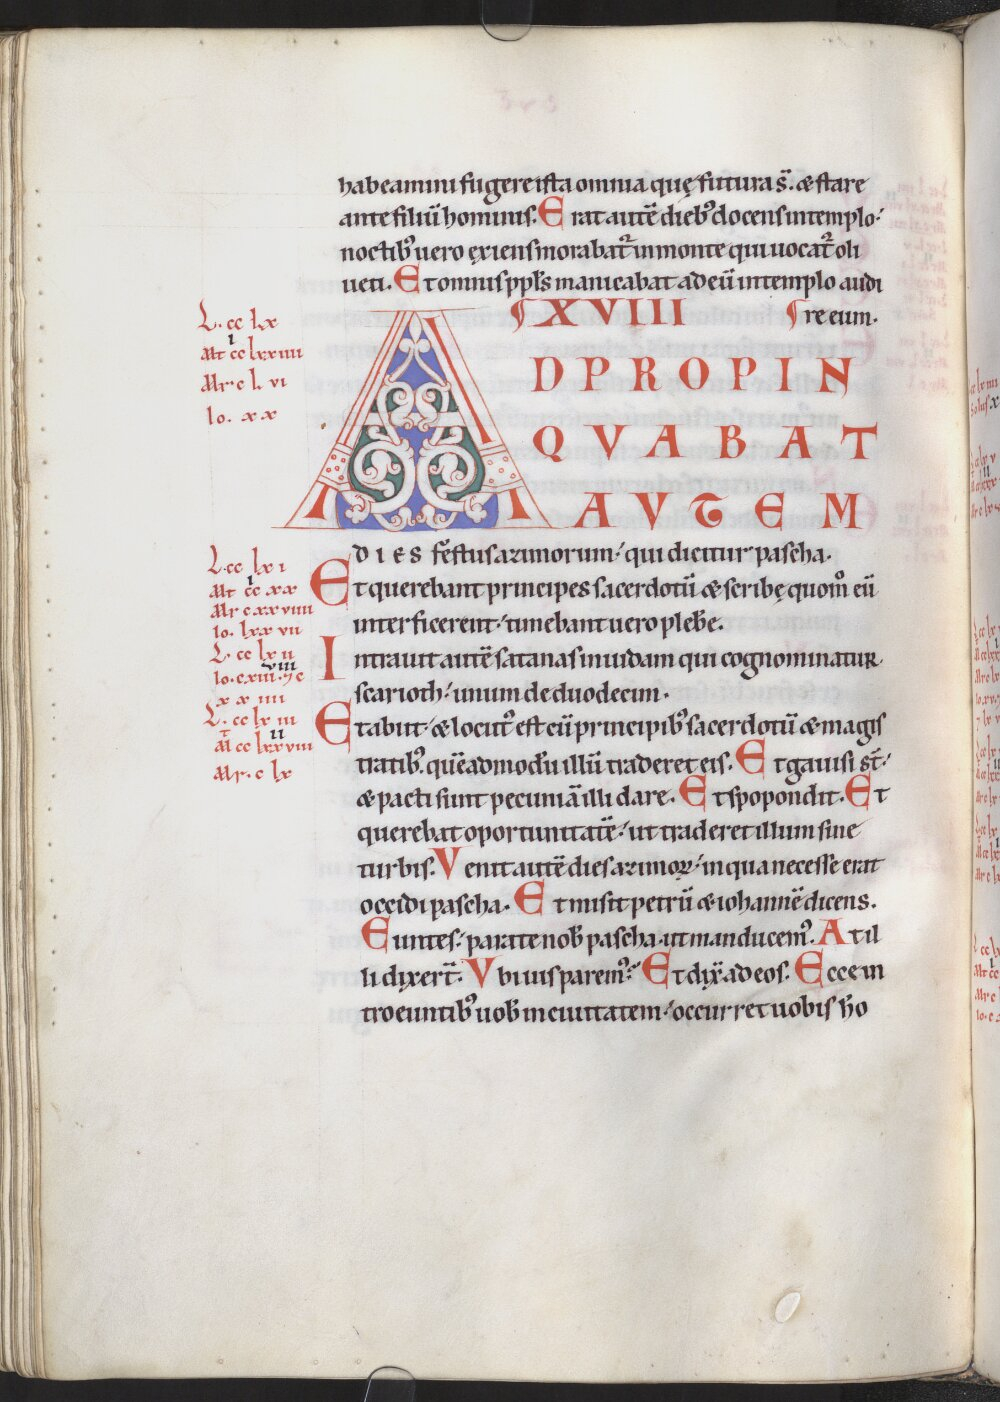 habeamini fugere ista omnia quę futura s̄. & stare
ante filiū hominis. Erat autē dieb᾽ docens in templo.
noctib᾽ uero exiens morabat᾽ in monte qui uocat᾽ oli
ueti. Et omnis ppl̄s manicabat ad eū in templo audi
XVIIII re eum.
A DPROPIN
QVABAT
AVTEM
DIES festus azimorum. qui dicitur pascha.
Et querebant principes sacerdotū & scribę quom̊ eū
interficerent. timebant uero plebē.
Intrauit autē satanas in iudam qui cognominatur
scarioth. unum de duodecim.
Et abiit. & locut᾽ est cū principib᾽ sacerdotū & magis
tratib᾽. quēadmodū illū traderet eis. Et gauisi st̄.
& pacti sunt pecuniā illi dare. Et spopondit. Et
querebat oportunitatē. ut traderet illum sine
turbis. Venit autē dies azimoꝝ. in qua necesse erat
occidi pascha. Et misit petrū & iohannē dicens.
Euntes. parate nob̄ pascha. ut manducem᾽. At il
li dixert̄. Vbi uis parem᾽. Et dix̄ ad eos. Ecce in
troeuntib᾽ uob̄ in ciuitatem. occurret uobis ho
L. cc lx
Mt cc lxxiiii
i
Mr c l vi
Io. xx
L. cc lx i
Mt cc xx
i
Mr c xxviiii
Io. lxxvii
L. cc lx ii
viii
Io. cxiii. 7 c
xxiiii
L. cc lx iii
ii
M cc lxxviii
Mr. c lx